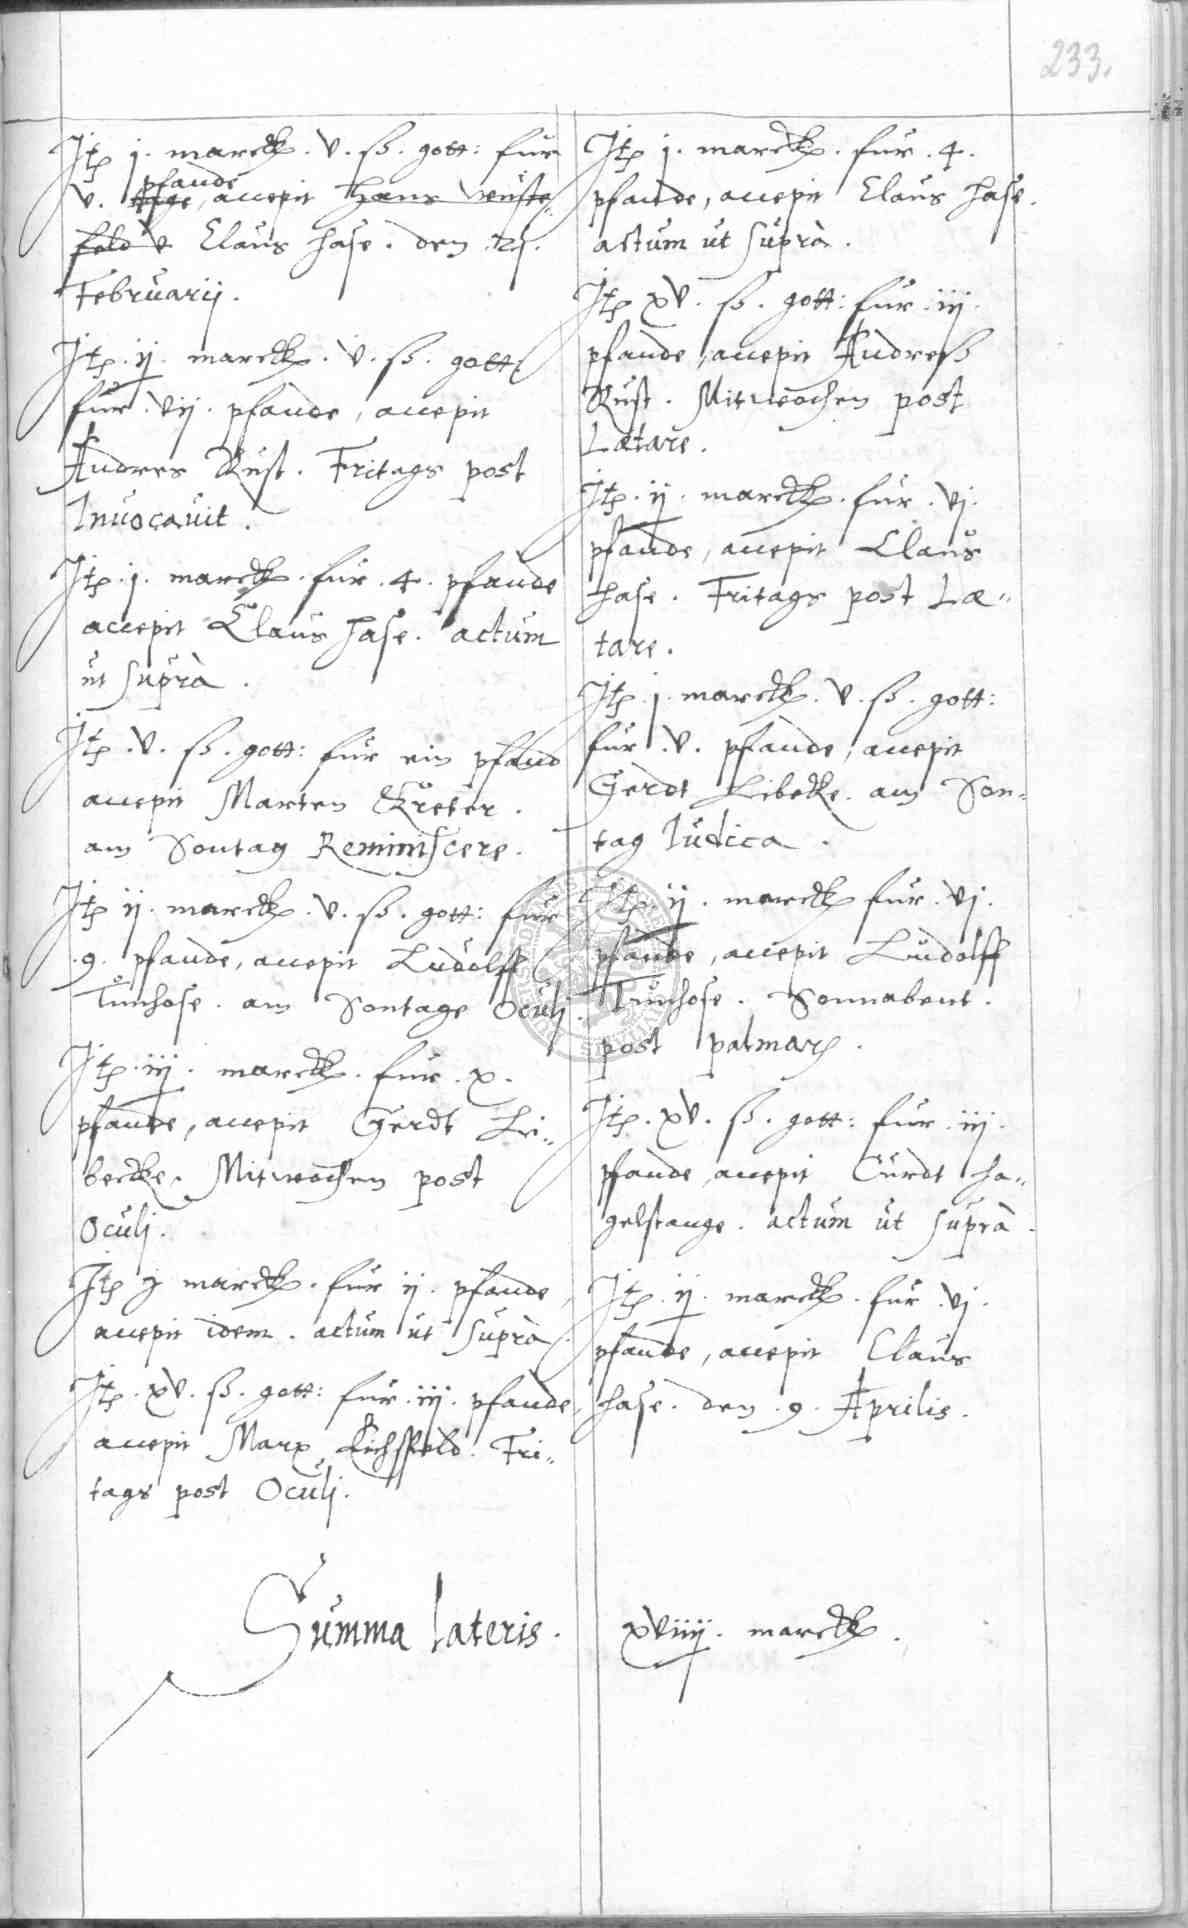 233.
Itp j. marck. v. ß. gott: fur
pfande
v. tage, accepit Hans Wuste-
feld v Claus Hase. den .25.
Februarij.
Itp. ij. marck. v. ß. gott:
fur. vij. pfande, accepit
Andres Rust. Fritags post
Invocavit.
Itp. j. marck. fur. 4. pfande
accepit Claus Hase. actum
ut suprà.
Itp. v. ß. gott: fur ein pfand
accepit Marten Kreter.
am Sontag Reminiscere.
Itp ij. marck. v. ß. gott: fur
.9. pfande, accepit Ludolff
Tunhose. am Sontage Oculj.
Itp. iij. marck. fur. x.
pfande, accepit Gerdt Li-
becke. Mitwochen post
Oculj.
Itp j marck. fur ij. pfande,
accepit idem. actum ut suprà.
Itp. xv. ß. gott: fur. iij. pfande,
accepit Marx Eichsfeld. Fri-
tags post Oculj.
Itp j. marck. fur. 4.
pfande, accepit Claus Hase.
actum ut suprà.
Itp xv. ß. gott: fur. iij.
pfande, accepit Andreß
Rust. Mitwochen post
Lætare.
Itp. ij. marck. fur. vj.
pfande, accepit Claus
Hase. Fritags post Læ-
tare.
Itp. j. marck. v. ß. gott:
fur. v. pfande, accepit
Gerdt Libecke. am Son-
tag Iudica.
Itp. ij. marck fur. vj.
pfande, accepit Ludolff
Tunhose. Sonnabent.
post palmarum.
Itp. xv. ß. gott: fur. iij.
pfande, accepit Curdt Ha-
gelstange. actum ut suprà.
Itp. ij. marck. fur. vj.
pfande, accepit Claus
Hase. den .9. Aprilis.
Summa lateris. xviiij. marck.